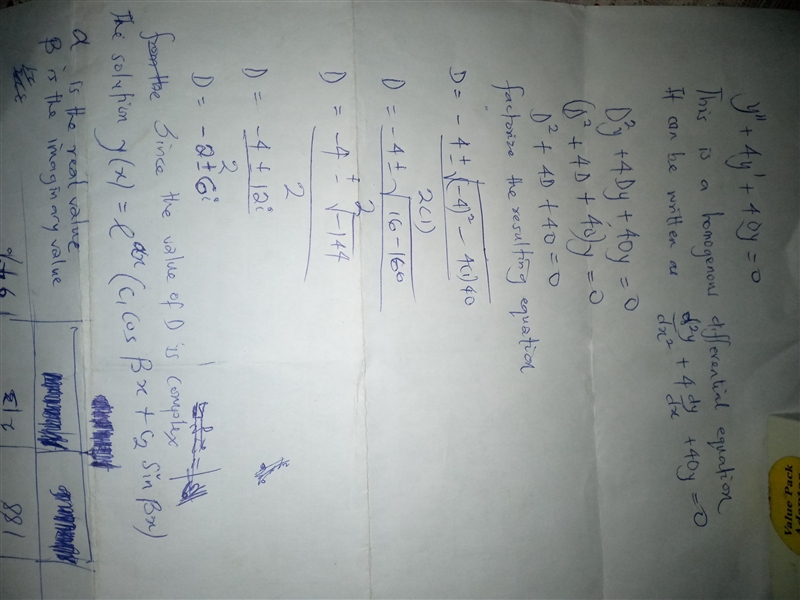 y'' + 4y' + 40y = 0
This is a homogenous differential equation
It can be written as d²y/dx² + 4 dy/dx + 40y = 0
D²y + 4Dy + 40y = 0
(D² + 4D + 40)y = 0
D² + 4D + 40 = 0
factorize the resulting equation
D = -4 ± √(-4)² - 4(1)40
2(1)
D = -4 ± √16 - 160
2
D = -4 ± √-144
2
D = -4 ± 12i
2
D = -2 ± 6i
Since the value of D is complex
The solution y(x) = e^αx (C₁ Cos βx + C₂ Sin βx)
α is the real value
β is the imaginary value
213
188
Value Pack